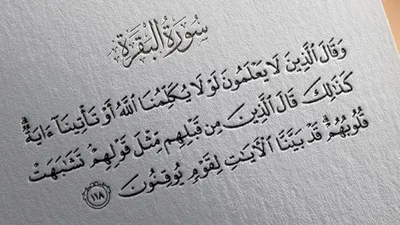 سُورَةُ البَقَرَةِ
وَقَالَ ٱلَّذِينَ لَا يَعْلَمُونَ لَوْلَا يُكَلِّمُنَا ٱللَّهُ أَوْ تَأْتِينَآ ءَايَةٌۗ
كَذَٰلِكَ قَالَ ٱلَّذِينَ مِن قَبْلِهِم مِّثْلَ قَوْلِهِمْۘ تَشَٰبَهَتْ
قُلُوبُهُمْۗ قَدْ بَيَّنَّا ٱلْأٓيَٰتِ لِقَوْمٍ يُوقِنُونَ ١١٨